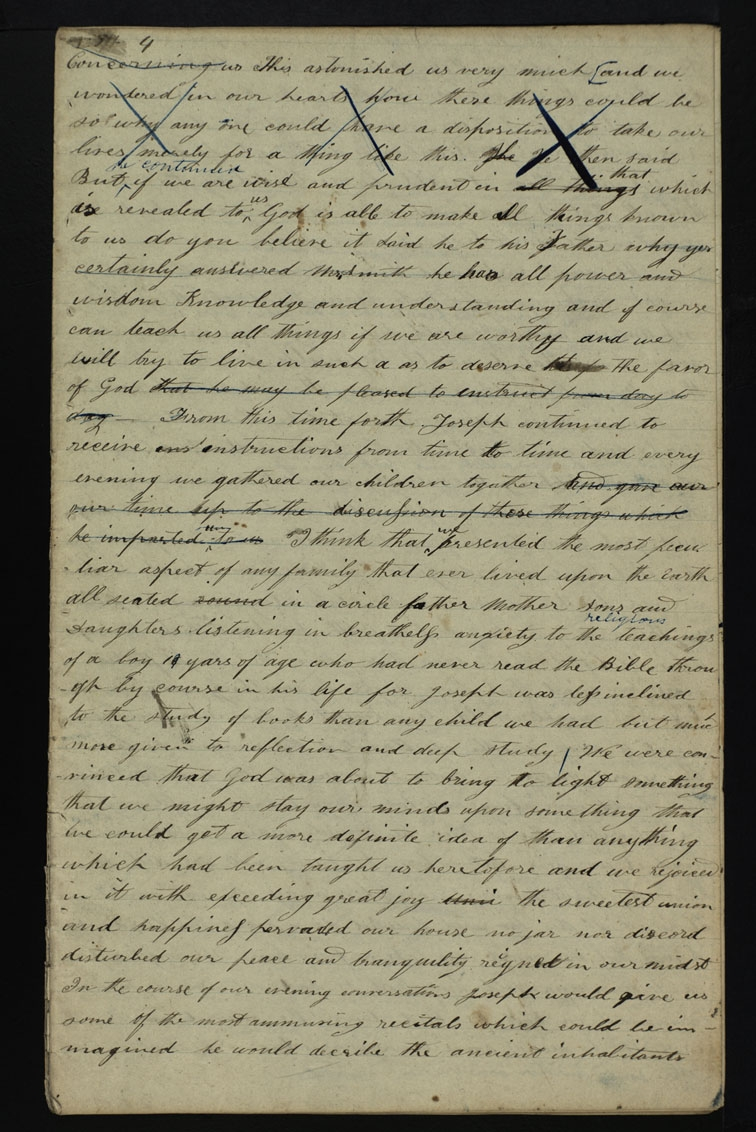 4
Concerning us This astonished us very much [and we
wondered in our hearts how these things could be
so why any one could have a disposition to take our
lives merely for a thing like this. He then said
he continued
that
But if we are wise and prudent in all things which
is revealed to us God is able to make all things known
to us do you believe it said he to his Father why yes
certainly answered Mr. Smith he has all power and
wisdom Knowledge and understanding and of course
can teach us all things if we are worthy and we
will try to live in such a as to deserve the favor
of God that he may be pleased to instruct from day to
day From this time forth Joseph continued to
receive instructions from time to time and every
evening we gathered our children together and gave our
our time up to the discussion of those things which
he imparted to us I think that we presented the most pecu
liar aspect of any family that ever lived upon the Earth
all seated round in a circle father Mother sons and
religious
Daughters listening in breathelss anxiety to the teachings
of a boy 19 yars of age who had never read the Bible throu
-gh by course in his life for Joseph was less inclined
to the study of books than any child we had but much
more given to reflection and deep study We were con-
vinced that God was about to bring to light something
that we might stay our minds upon some thing that
we could get a more definite idea of than anything
which had been taught us heretofore and we rejoiced
in it with exceeding great joy the sweetest union
and happiness pervaded our house no jar nor discord
disturbed our peace and tranquility reigned in our midst
In the course of our evening conversations Joseph would give us
some of the most ammusing recitals which could be im-
magined he would decribe the ancient inhabitants